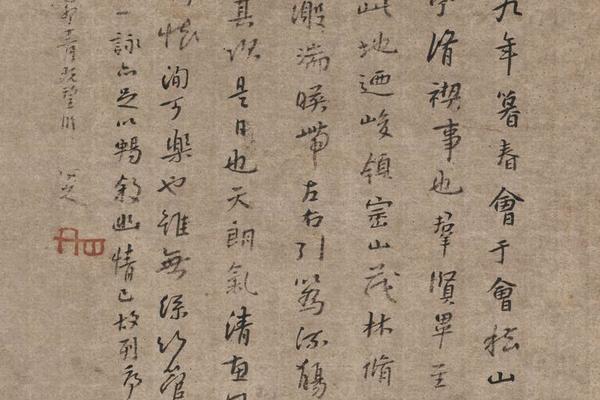 九年暮春會于會稽山
亭脩禊事也羣賢畢至
此地迺峻領崇山茂林脩
激湍暎帶左右引以為流觴
其次是日也天朗氣清惠
懷洵可樂也雖無絲竹管
一詠亦足以暢敘幽情已故列序
既望